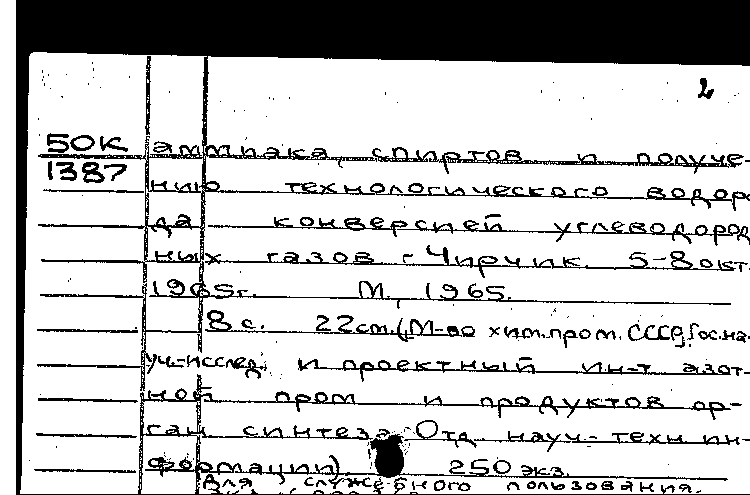 2
50К аммиака, спиртов и получе-
1387 нию технологического водоро
да конверсией углеводород
ных газов. Чирчик. 5-8 окт.
1965г. М., 1965.
8 с. 22 см. (М-во хим. пром. СССР, Гос. на
уч.-исслед. и проектный ин-т азот-
ной пром и продуктов ор-
ган синтеза. Отд. науч.-техн ин-
формации) 250 экз.
Для служебного пользования.